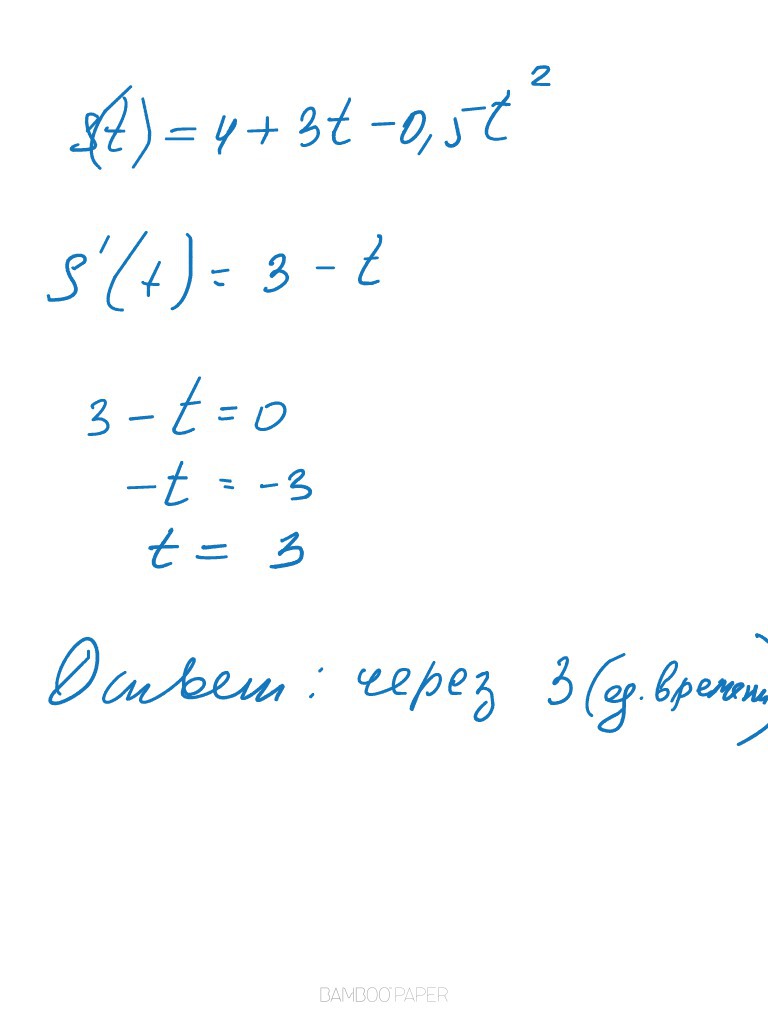 S(t) = 4 + 3t - 0,5t²
S'(t) = 3 - t
3 - t = 0
-t = -3
t = 3
Ответ: через 3 (ед. времени)
BAMBOO PAPER